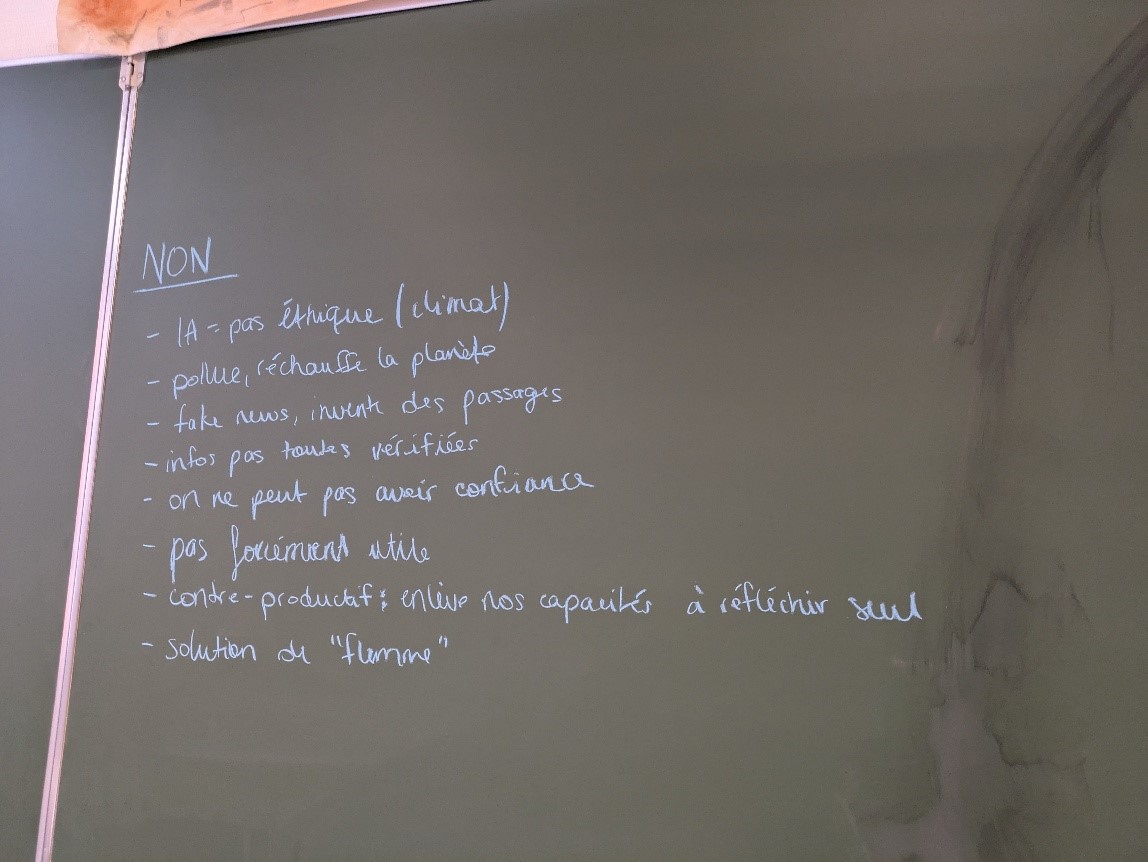 NON
- IA = pas éthique (climat)
- pollue, réchauffe la planète
- fake news, invente des passages
- infos pas toutes vérifiées
- on ne peut pas avoir confiance
- pas forcément utile
- contre-productif : enlève nos capacités à réfléchir seul
- solution de "flemme"